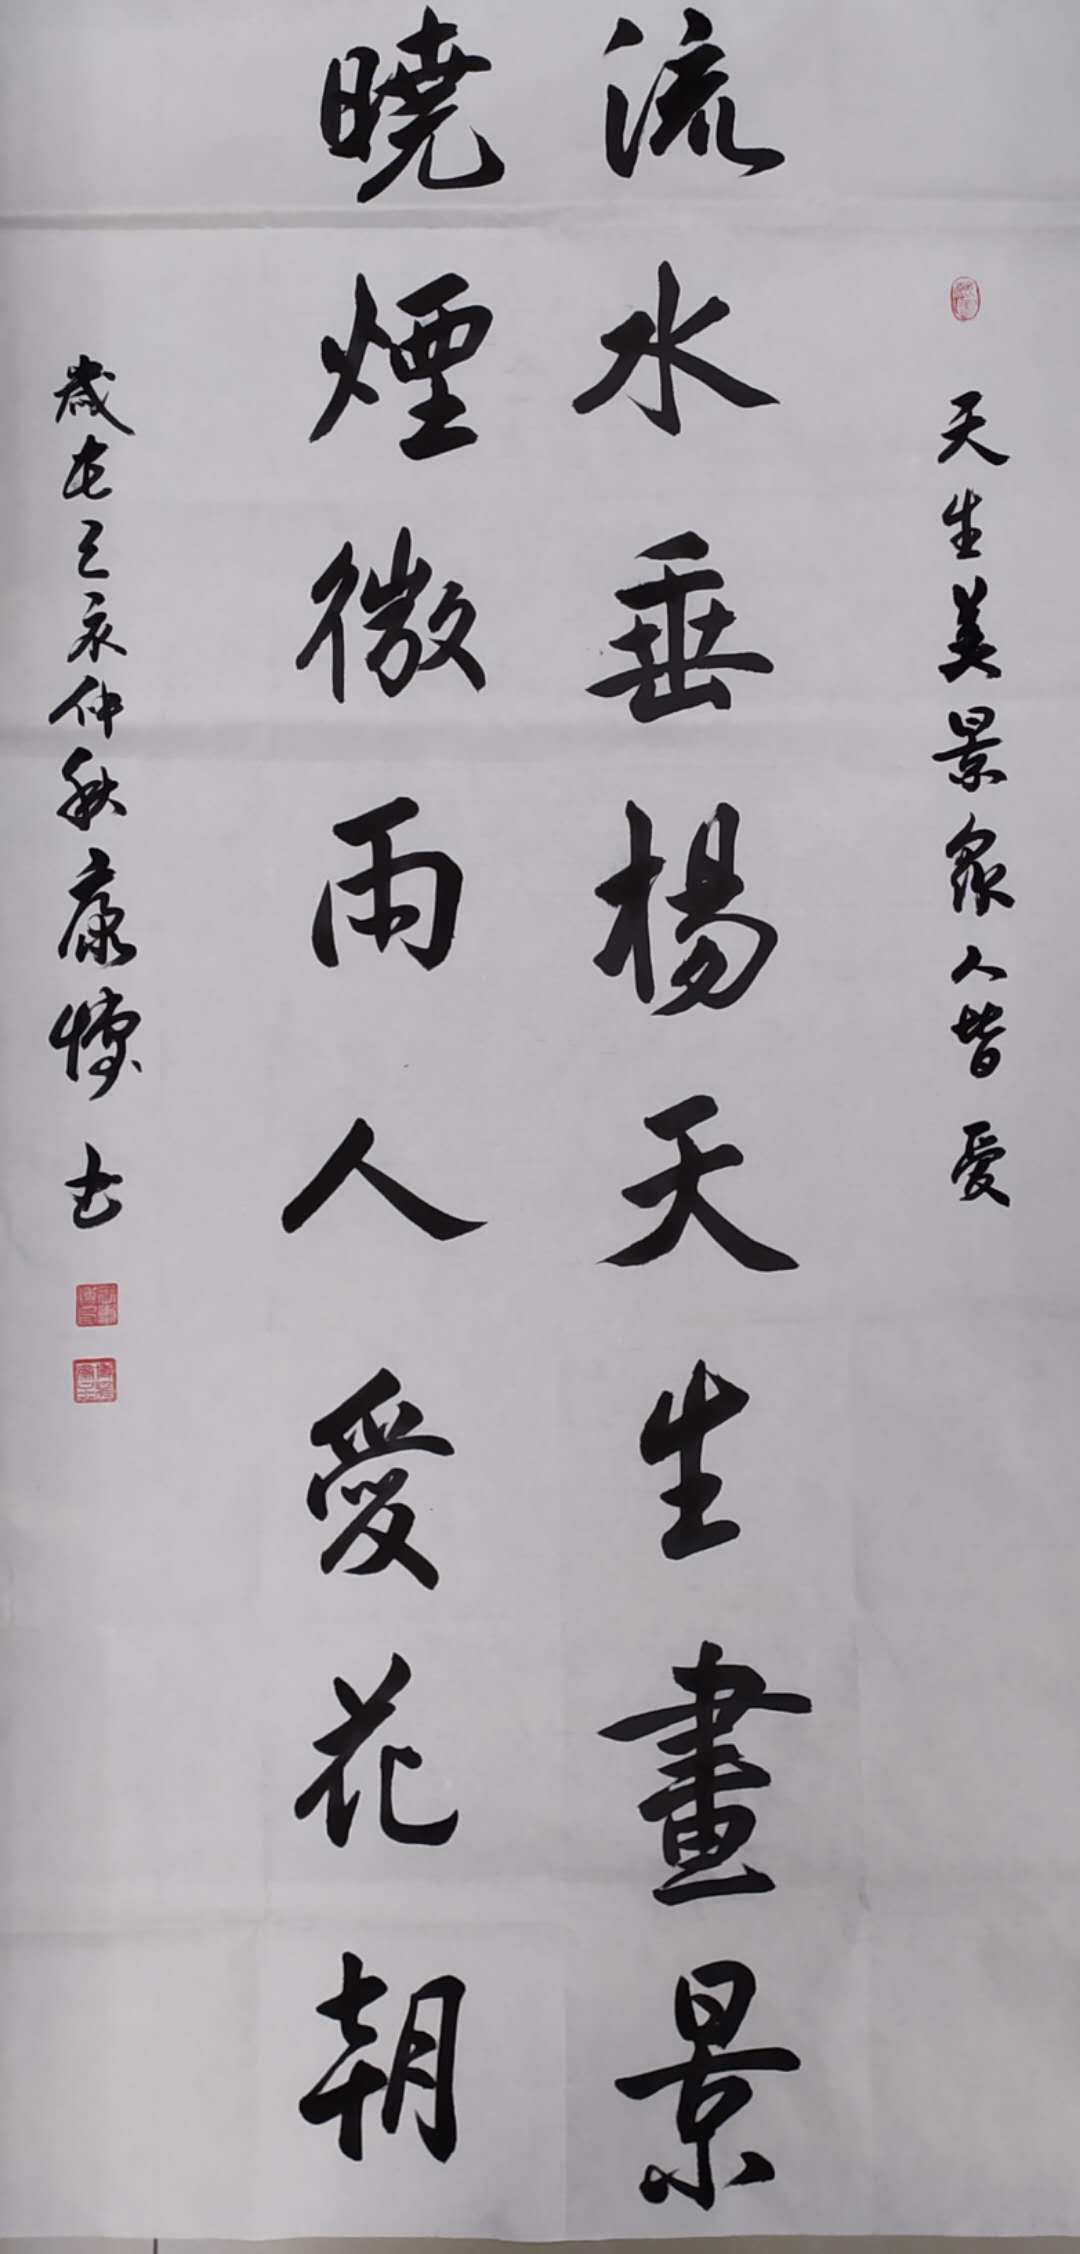 天生美景眾人皆愛
流水垂楊天生畫景
曉煙微雨人愛花朝
歲在己亥仲秋康博書